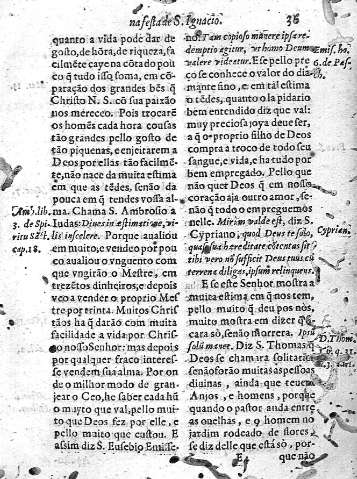 na festa de S. Ignacio. 36
quanto a vida póde dar de
gosto, de hõra, de riqueza, fa
cilmẽte caye na cõta do pou
co q̃ tudo isso soma, em cõ-
paração dos grandes bẽs q̃
Christo N. S. cõ sua paixão
nos mereceo. Pois trocarẽ
os homẽs cada hora cousas
tão grandes pello gosto de
tão piquenas, e enjeitarem a
Deos por ellas tão facilmẽ-
te, não nace da muita estima
em que as tẽdes, senão da
pouca em q̃ tendes vossa al-
ma. Chama S. Ambrosio a
Iudas:
Porque aualiou
em muito, e vendeo por pou
co aualiou o vnguento com
que vngirão o Mestre, em
trezẽtos dinheiros, e depois
veo a vender o proprio Mes
tre por trinta. Muitos Chris
tãos ha q̃ darão com muita
facilidade a vida por Chris
to nosso Senhor: mas depois
por qualquer fraco interes-
se vendem sua alma. Por on
de o milhor modo de gran-
jear o Ceo, he saber cada hũ
o muyto que val, pello mui-
to que Deos fez por elle, e
pello muito que custou. E
assim diz S. Eusebio Emisse-
Amb. lib.
3. de Spi-
ritu Sãct.
cap. 18.
no: Tam copioso munere ipsa re-
demptio agitur, ut homo Deum
valere videatur. E se pello pre
ço se conhece o valor do dia-
mante fino, e em tal estima
o tẽdes, quanto o lapidario
bem entendido diz que val:
muy preciosa joya deue ser,
a q̃ o proprio filho de Deos
compra a troco de todo seu
sangue, e vida, e ha tudo por
bem empregado. Pello que
não quer Deos q̃ em nosso
coração aja outro amor, se-
não q̃ todo o empreguemos
nelle. diz S.
Cypriano, quod Deus te solo,
qua sua hereditate cõtentus sit:
tibi vero nõ sufficit Deus tuus
terrena diliges, ipsum relinquere.
E se este Senhor mostra a
muita estima em q̃ nos tem,
pello muito q̃ deu por nós,
muito mostra em dizer q̃
cara só, senão morrera.
Diz S. Thomas q̃
Deos se chamara solitario
senão forão muitas as pessoas
diuinas, ainda que teuera
Anjos, e homens, porque
quando o pastor anda entre
as ouelhas, e o homem no
jardim rodeado de flores,
se diz delle que está só, por-
E 4 que não
Emis. ho.
6. de Pas-
Cyprian.
D. Thom.